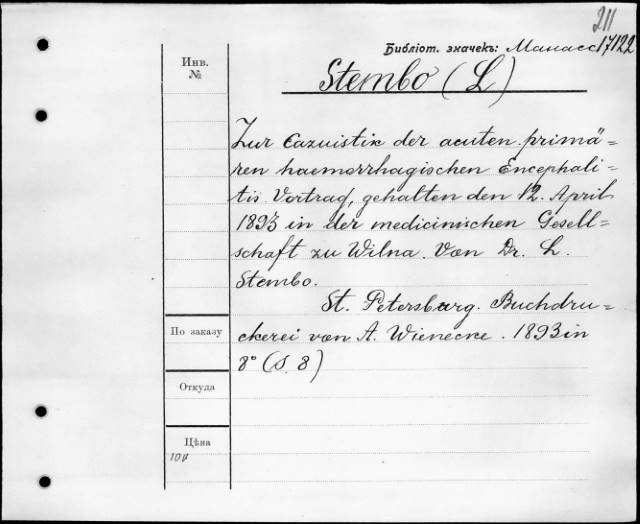 211
Библіот. значекъ: Манасс 17122
Инв.
№
Stembo (L)
Zur Cazuistik der acuten primä=
ren haemorrhagischen Encephali=
tis. Vortrag, gehalten den 12. April
1893 in der medicinischen Gesell=
schaft zu Wilna. Von Dr. L.
Stembo.
St. Petersburg. Buchdru=
ckerei von A. Wienecke. 1893 in
8° (S. 8)
По заказу
Откуда
Цѣна